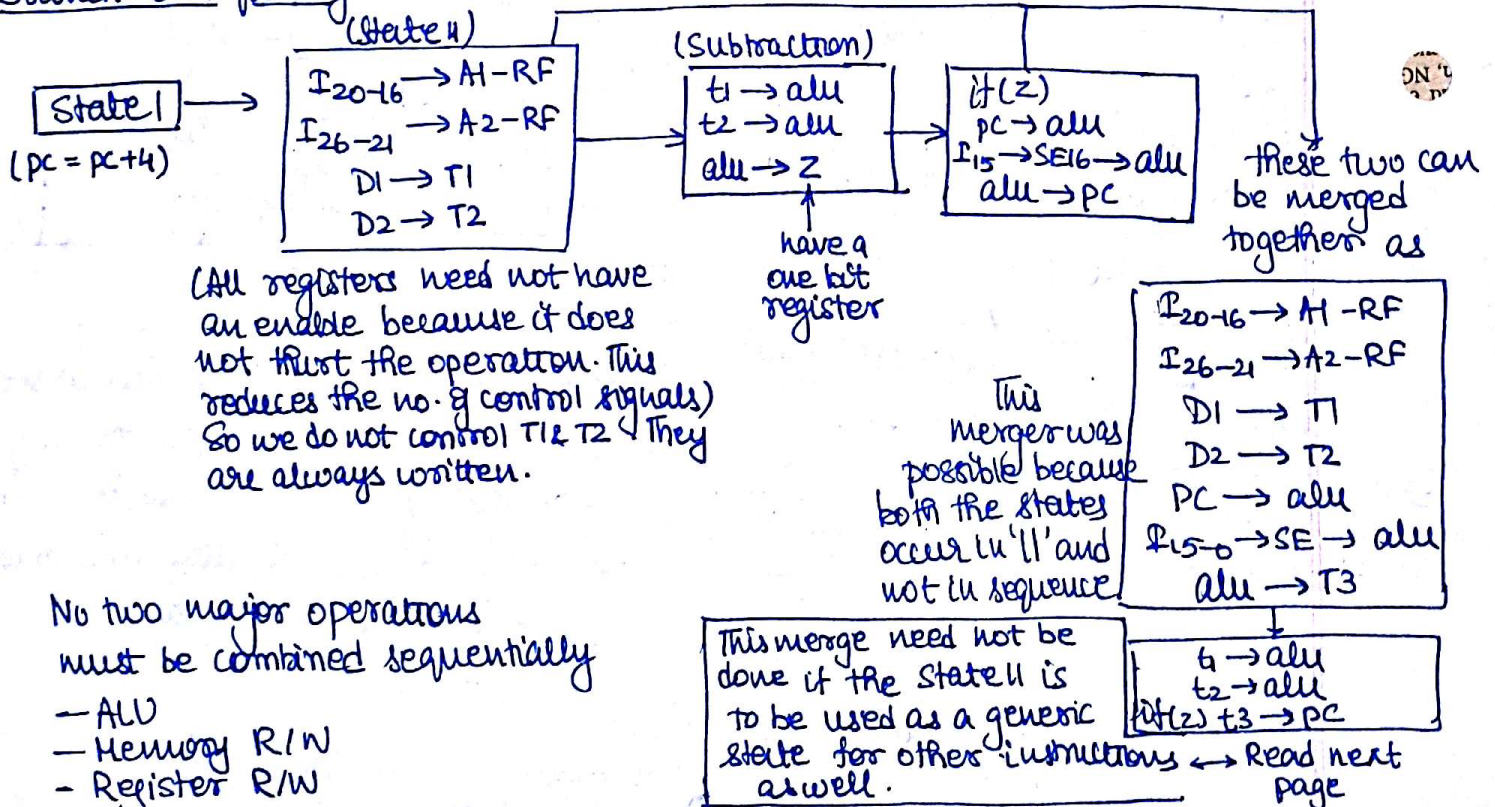 (State 11)
I20-16 → A1-RF
I26-21 → A2-RF
D1 → T1
D2 → T2
State 1
(pc = pc+4)
(Subtraction)
t1 → alu
t2 → alu
alu → Z
have a
one bit
register
if(z)
pc → alu
I15 → SE16 → alu
alu → PC
these two can
be merged
together as
(All registers need not have
an enable because it does
not the operation. This
reduces the no. of control signals)
So we do not control T1 & T2. They
are always written.
I20-16 → A1 -RF
I26-21 → A2-RF
D1 → T1
D2 → T2
PC → alu
I15-0 → SE → alu
alu → T3
This
merger was
possible because
both the states
occur in '11' and
not in sequence
t1 → alu
t2 → alu
if(z) t3 → PC
No two major operations
must be combined sequentially
- ALU
- Memory R/W
- Register R/W
This merge need not be
done if the State 11 is
to be used as a generic
state for other instructions ↔ Read next
as well.
page